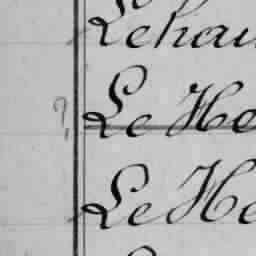 Lehau
? Le He
Le He